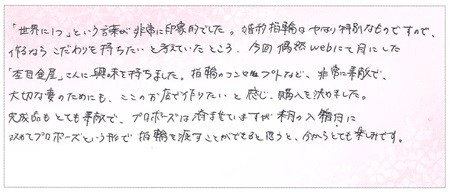 「世界に1つ」という言葉が非常に印象的でした。婚約指輪はやはり特別なものですので、
作るなら こだわりを持ちたいと考えていたところ、今回偶然webにて目にした
「杢目金屋」さんに興味を持ちました。指輪のコンセプトなど、非常に素敵で、
大切な妻のためにも、ここのお店で作りたいと感じ、購入を決めました。
完成品もとても素敵で、プロポーズは済ませていますが 来月の入籍前に
改めてプロポーズという形で 指輪を渡すことができると思うと、今からとても楽しみです。